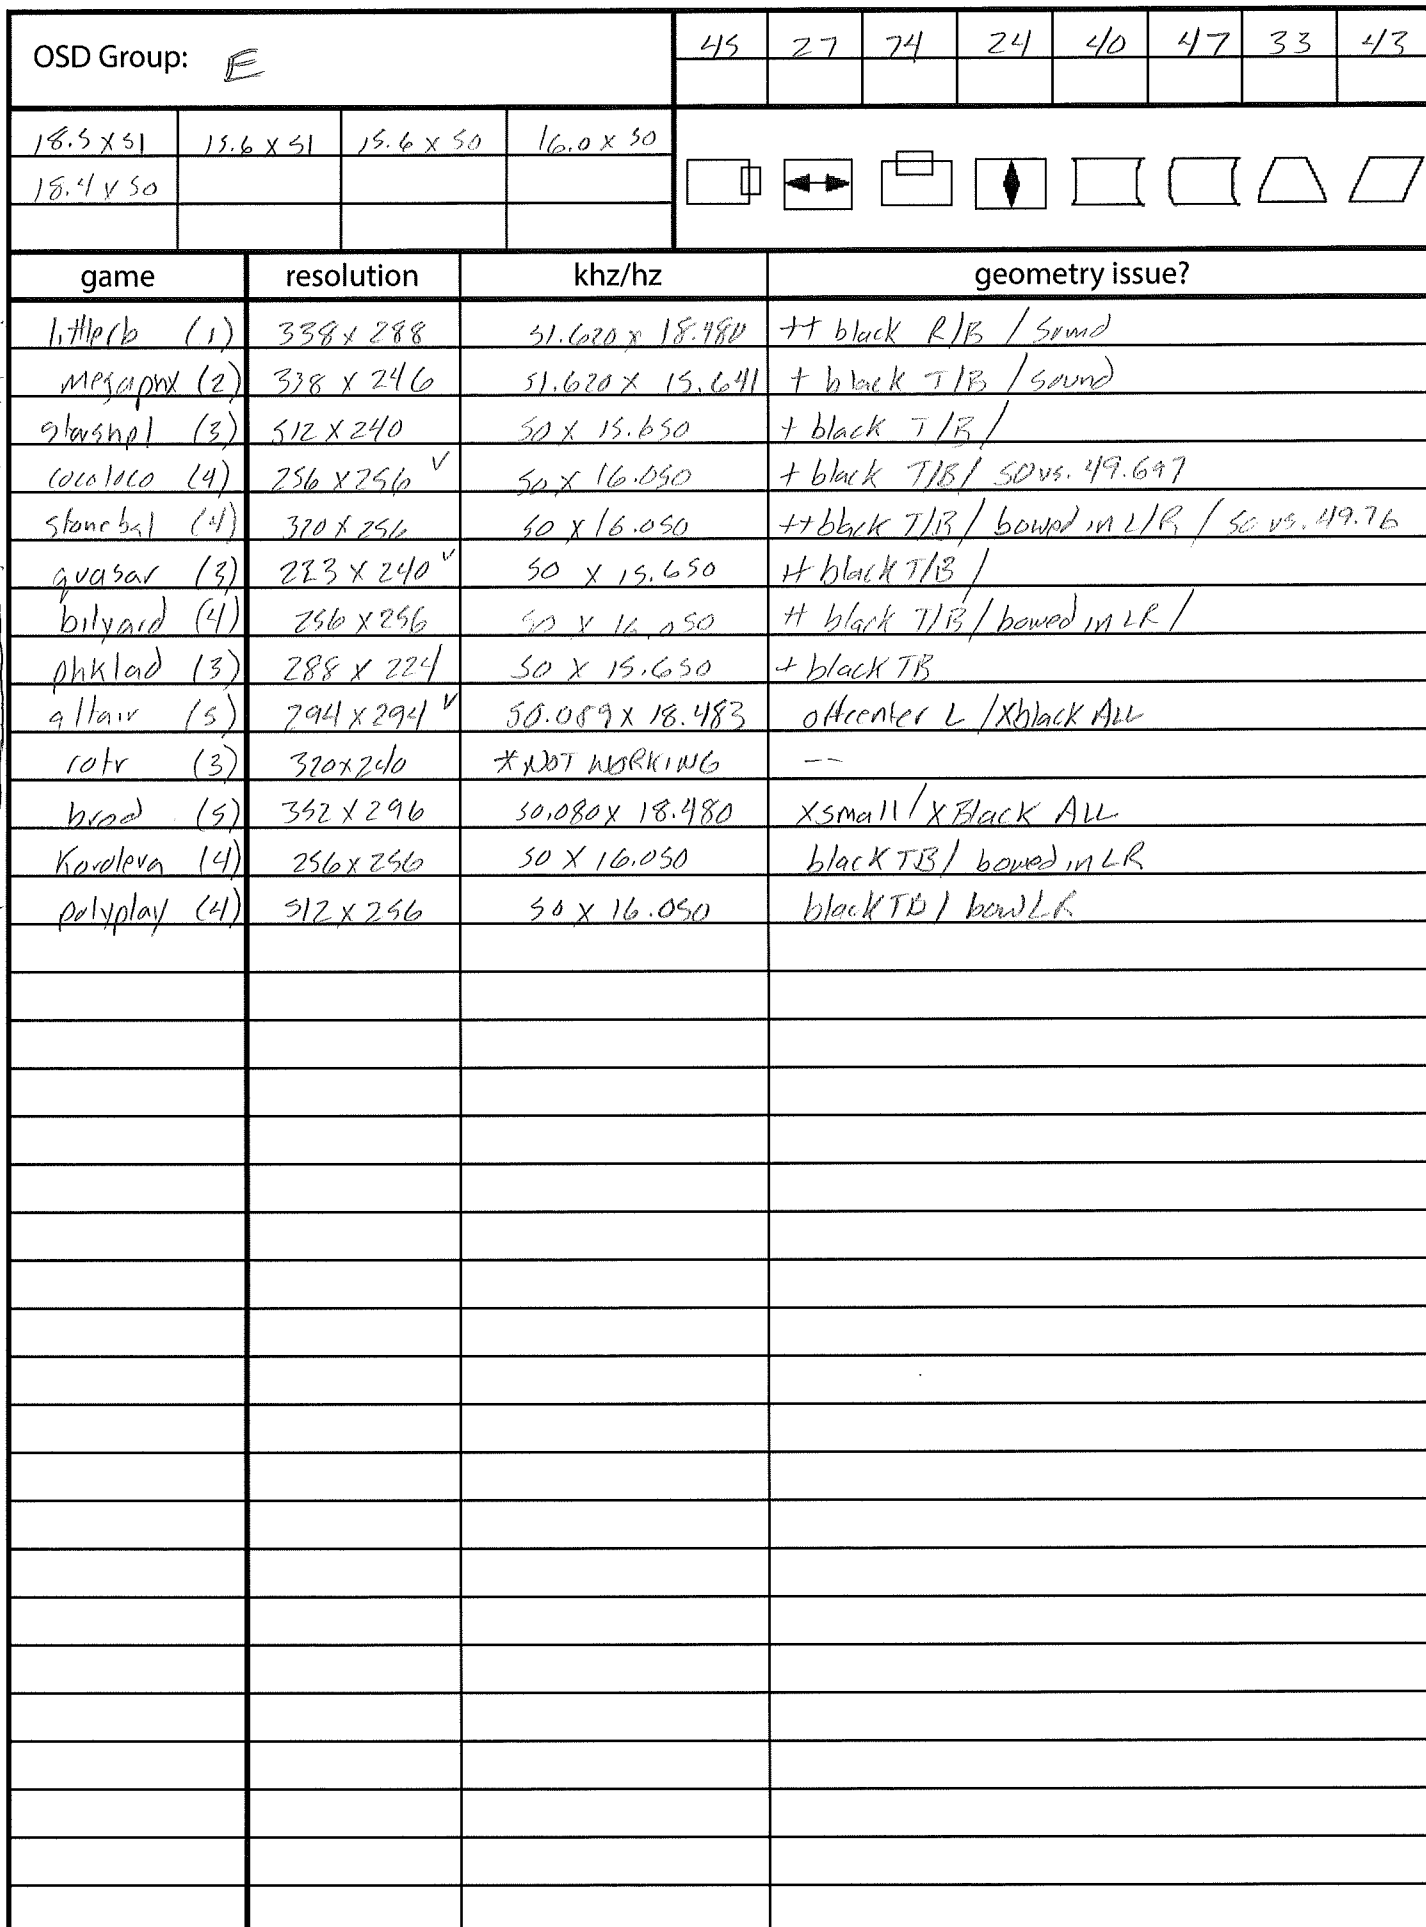 OSD Group: E
45 27 74 24 40 47 33 43
18.5 x 51 15.6 x 51 15.6 x 50 16.0 x 50
18.4 x 50
game resolution khz/hz geometry issue?
littlerb (1) 338 x 288 51.620 x 18.480 ++ black R/B / Sound
megaphx (2) 338 x 246 51.620 x 15.641 + black T/B / Sound
(3) 512 x 240 50 x 15.650 + black T/B /
cocoloco (4) 256 x 256 V 50 x 16.050 + black T/B / 50 vs. 49.697
stonebal (4) 320 x 256 50 x 16.050 ++ black T/B / bowed in L/R / 50 vs. 49.76
quasar (3) 223 x 240 V 50 x 15.650 ++ black T/B /
bilyard (4) 256 x 256 50 x 16.050 ++ black T/B / bowed in LR /
phklad (3) 288 x 224 50 x 15.650 + black TB
altair (5) 294 x 294 V 50.089 x 18.483 offcenter L / Xblack ALL
rotr (3) 320x240 * NOT WORKING --
brod (5) 352 x 296 50.080 x 18.480 Xsmall / X Black ALL
Koroleva (4) 256x256 50 x 16.050 black TB / bowed in LR
polyplay (4) 512 x 256 50 x 16.050 black TB / bow LR